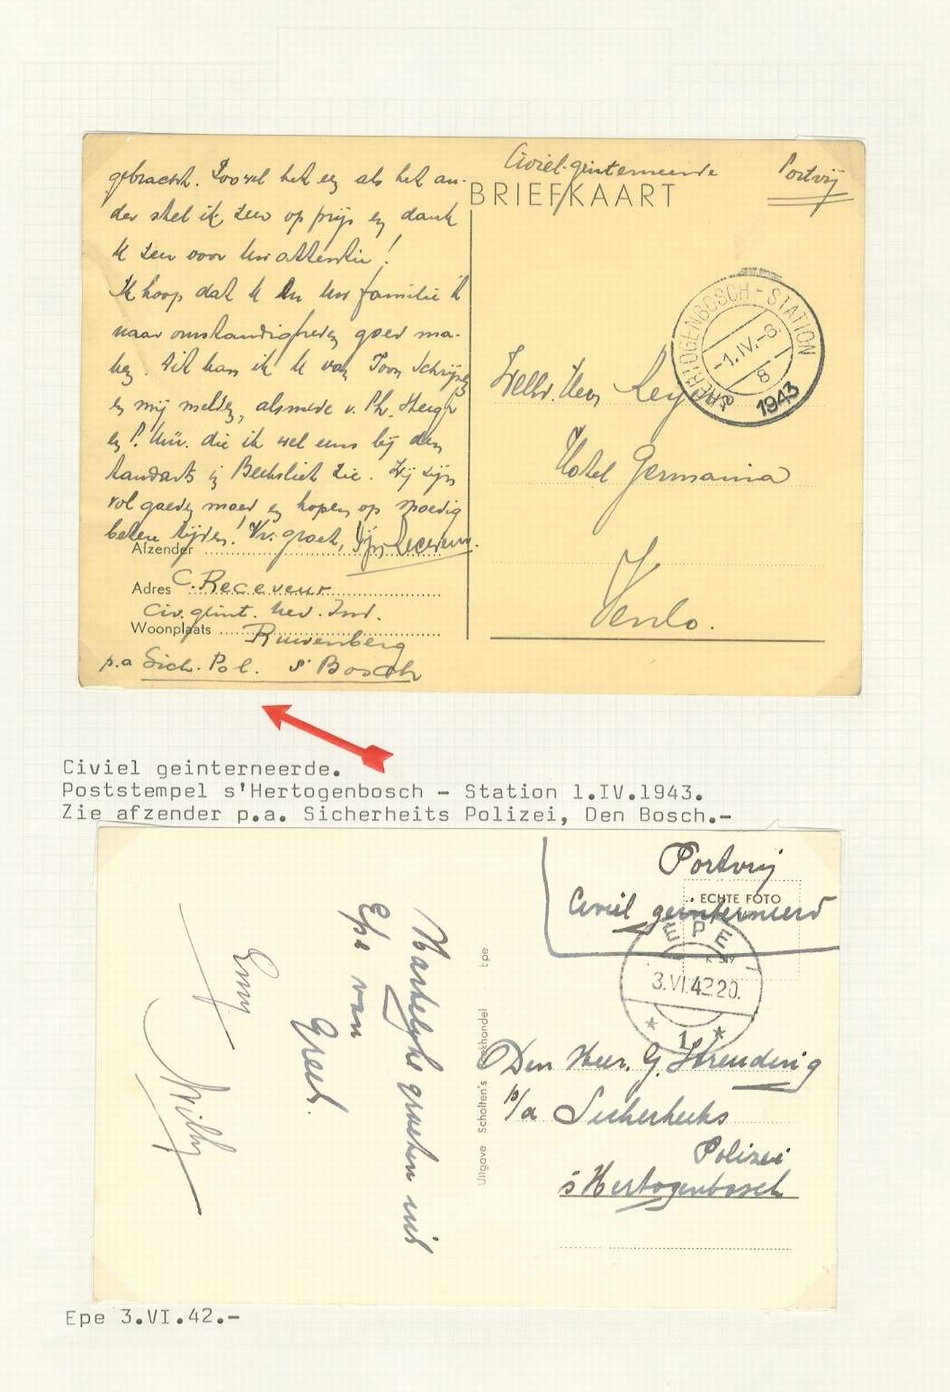 Civiel geinterneerde Portvrij
BRIEFKAART
gebracht. Zoowel het een als het an-
der stel ik zeer op prijs en dank
U zeer voor Uw attentie!
Ik hoop dat U en Uw familie 't
naar omstandigheden goed ma-
ken. Dit kan ik U van Toon Schrijver
en mij melden, alsmede v. Ph.
en P. die ik wel eens bij den
tandarts in Beekvliet zie. Wij zijn
vol goeden moed en hopen op spoedig
betere tijden! Vr. groet, Receveur.
Afzender
Adres C. Receveur
Civ. geint. Ned. Ind.
Woonplaats Ruwenberg
p.a Sich. Pol. s' Bosch
'S HERTOGENBOSCH-STATION
-1.IV.-8
8
1943
Heer
Hotel Germania
Venlo.
Civiel geinterneerde.
Poststempel s'Hertogenbosch - Station 1.IV.1943.
Zie afzender p.a. Sicherheits Polizei, Den Bosch.-
Portvrij
ECHTE FOTO
Civiel geïnterneerd
EPE
3.VI.42 20.
1
Den Heer. G.
p/a Sicherheits
Polizei
's Hertogenbosch
Uitgave Scholten's Boekhandel - Epe
Hartelijke groeten uit
Epe van
Greet.
Emy
Willy
Epe 3.VI.42.-